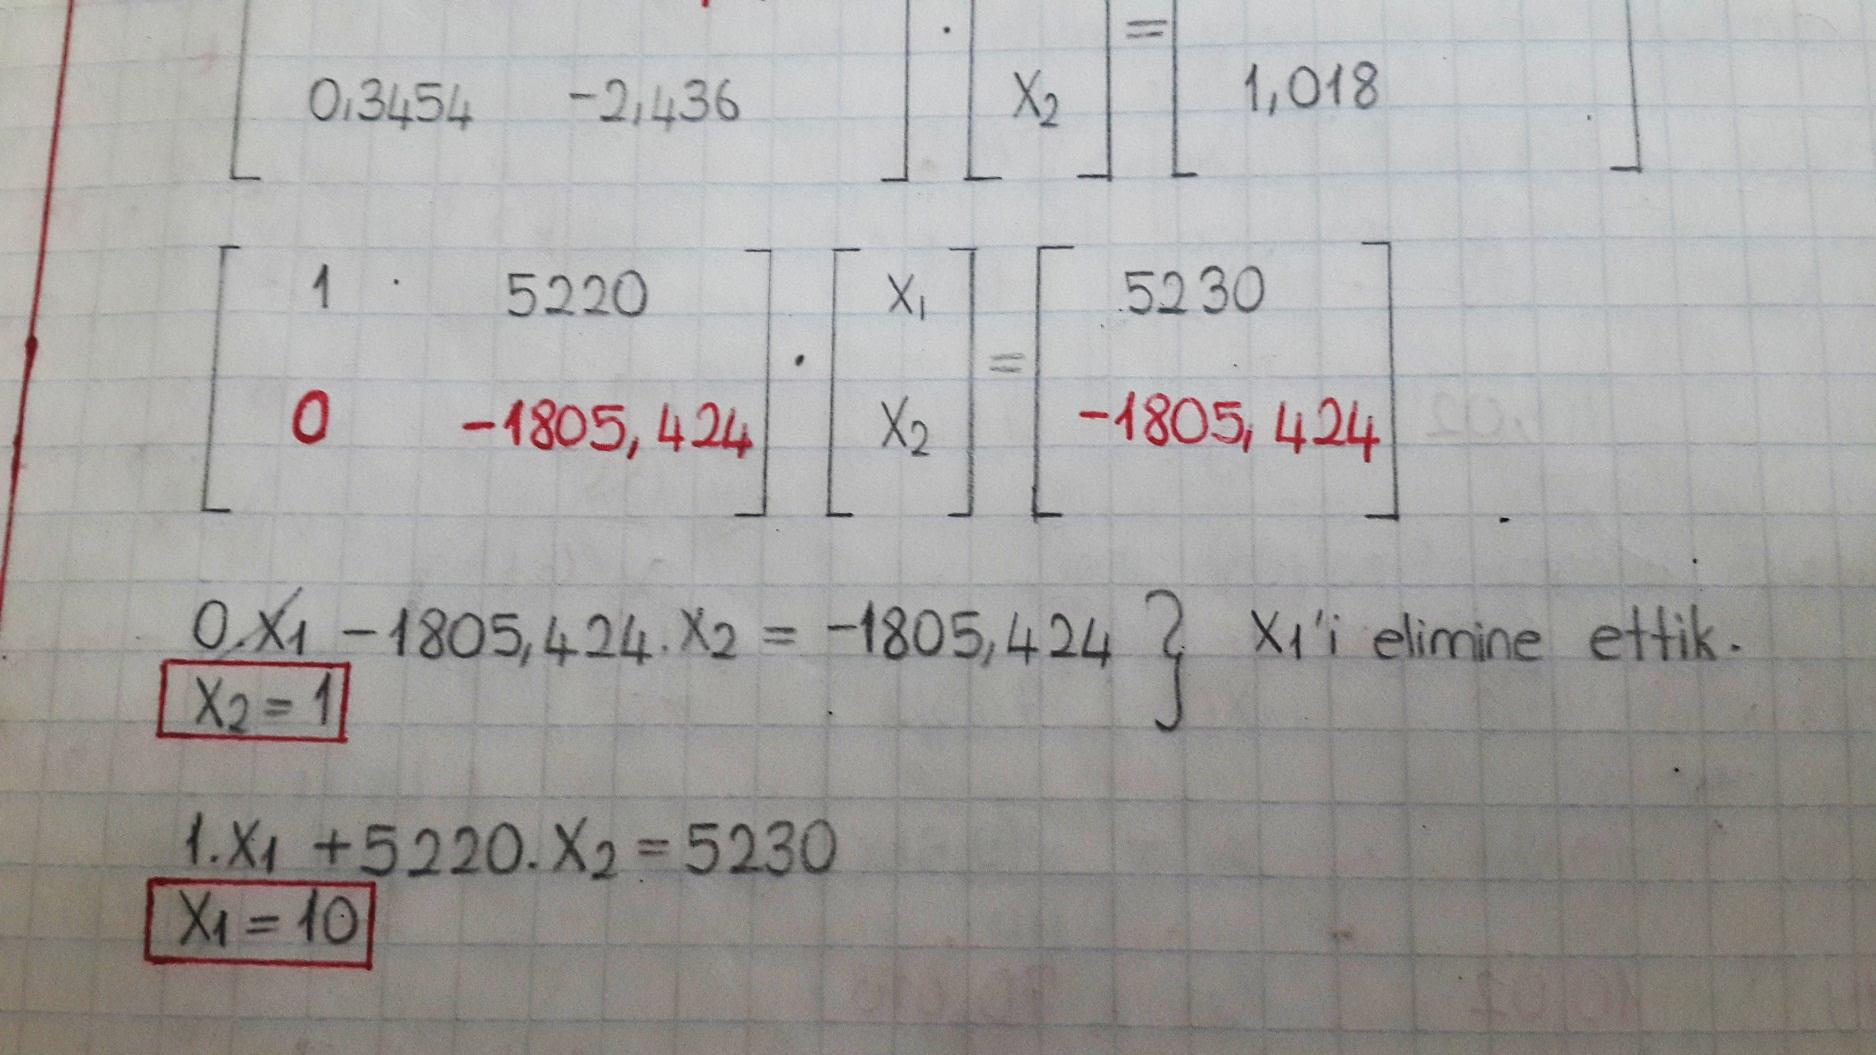 . =
0,3454 -2,436 X2 1,018
1 5220 X1 5230
. =
0 -1805,424 X2 -1805,424
0.X1 - 1805,424.X2 = -1805,424 } X1'i elimine ettik.
X2 = 1
1.X1 + 5220.X2 = 5230
X1 = 10